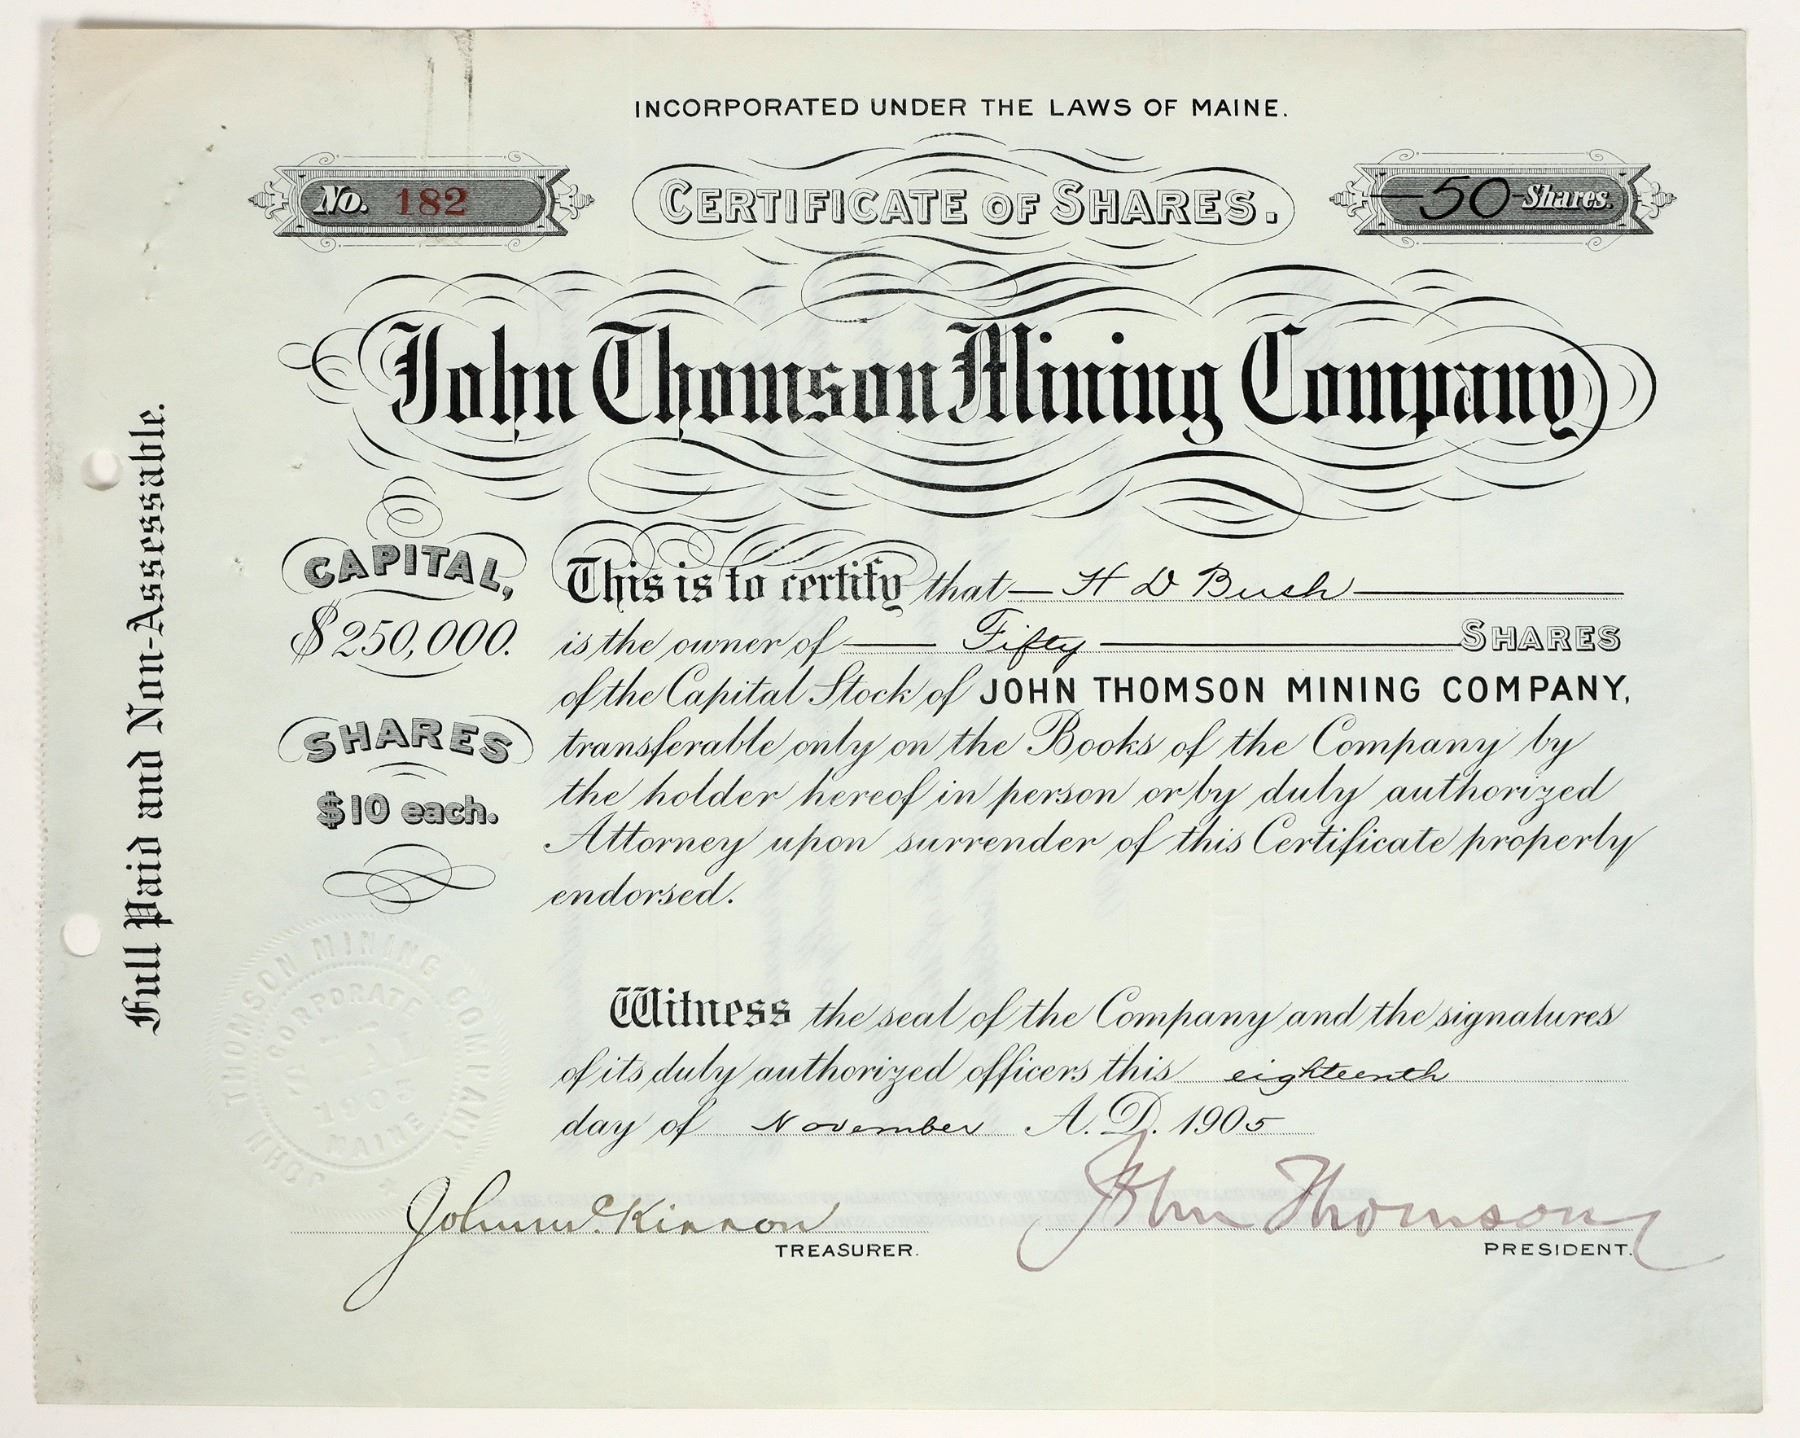 INCORPORATED UNDER THE LAWS OF MAINE.
No. 182
CERTIFICATE OF SHARES.
50 Shares.
John Thomson Mining Company
Full Paid and Non-Assessable.
CAPITAL,
$250,000.
SHARES
$10 each.
This is to certify that H D Bush
is the owner of Fifty SHARES
of the Capital Stock of JOHN THOMSON MINING COMPANY,
transferable only on the Books of the Company by
the holder hereof in person or by duly authorized
Attorney upon surrender of this Certificate properly
endorsed.
Witness the seal of the Company and the signatures
of its duly authorized officers this eighteenth
day of November A.D. 1905
JOHN THOMSON MINING COMPANY
CORPORATE
MAINE
John McKinnon
TREASURER.
John Thomson
PRESIDENT.